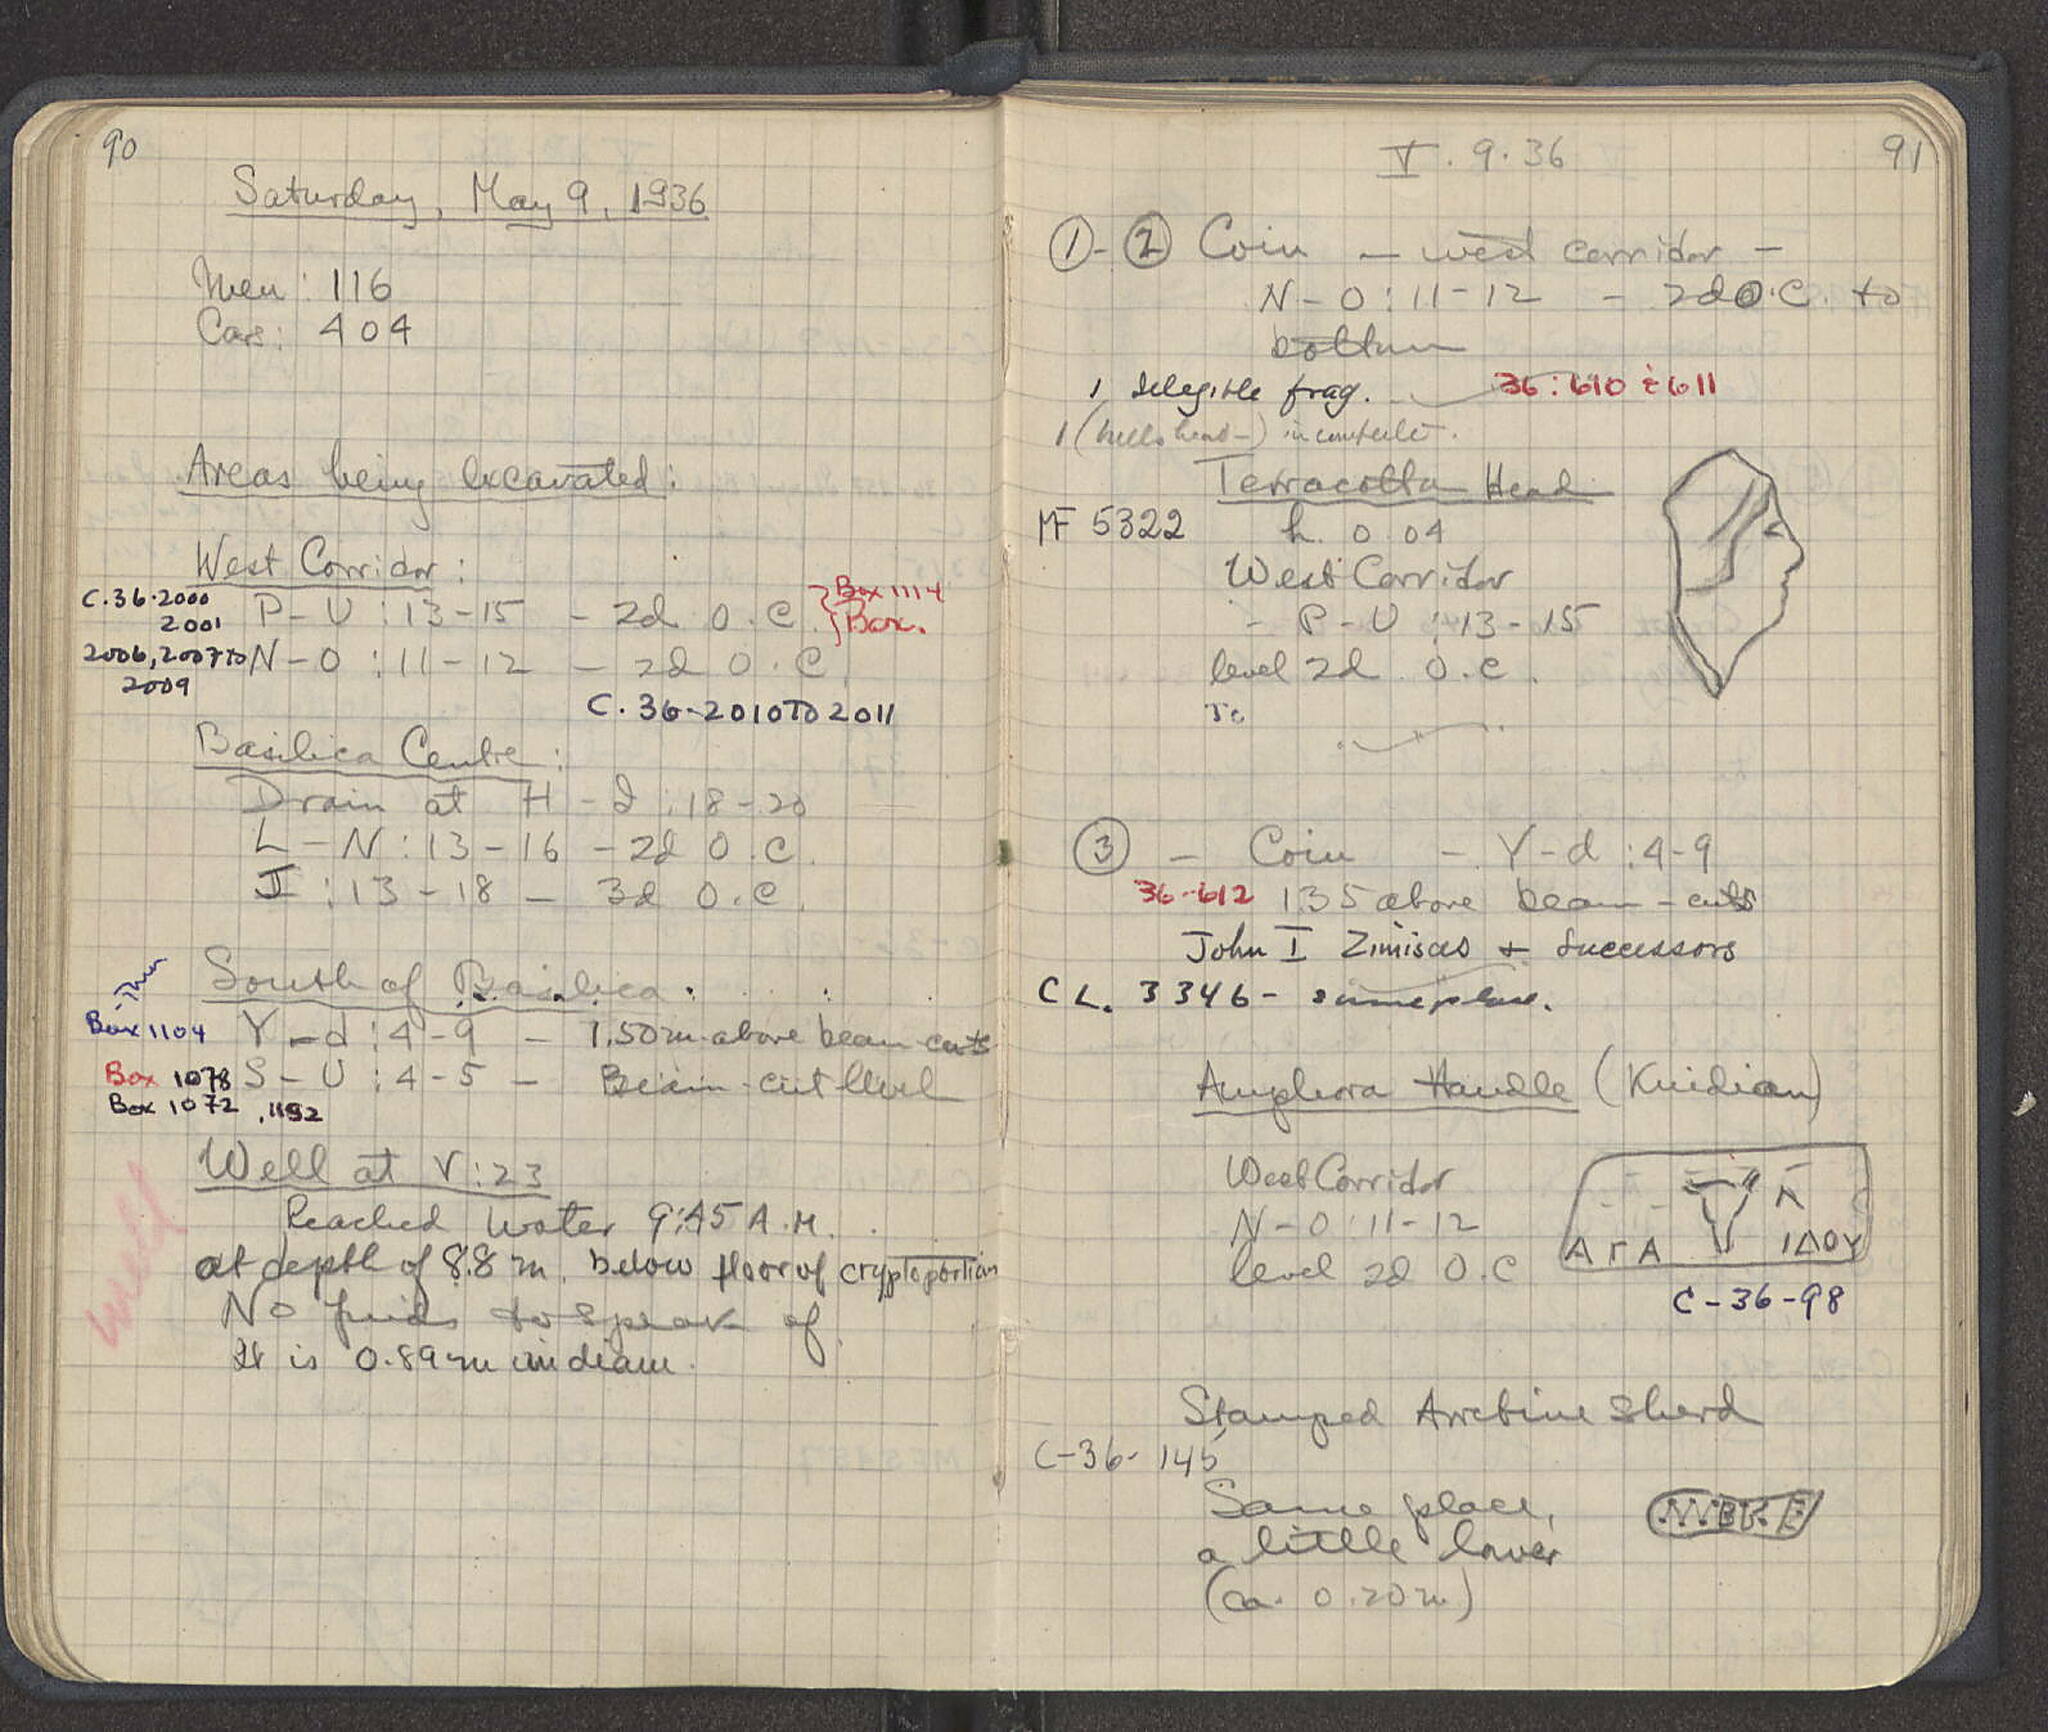 90
Saturday, May 9, 1936
Men: 116
Cars: 404
Areas being excavated:
West Corridor:
C.36.2000
2001
P-U : 13-15 - 2d O.C.
Box 1114
Box.
2006, 2007 TO
2009
N-O : 11-12 - 2d O.C.
C. 36-2010 TO 2011
Basilica Centre:
Drain at H-d : 18-20
L-N : 13-16 - 2d O.C.
II : 13-18 - 3d O.C.
South of Basilica:
Box 1104
Y-d : 4-9 - 1.50 m above beam-cuts
Box 1078
S-U : 4-5 - Beam-cut level
Box 1072, 1152
Well at V:23
Well
Reached water 9:45 A.M.
at depth of 8.8 m. below floor of cryptoportion
No finds to speak of.
It is 0.89 m in diam.
V. 9. 36
91
1 - 2 Coin - west corridor -
N-O : 11-12 - 2d O.C. to
bottom
1 illegible frag. 36:610 & 611
1 incomplete.
Terracotta Head
MF 5322
h. 0.04
West Corridor
- P-U : 13-15
level 2d O.C.
To
3 - Coin - Y-d : 4-9
36-612 1.35 above beam-cuts
John I Zimisces + Successors
CL. 3346 - same place.
Amphora Handle (Knidian)
West Corridor
N-O : 11-12
level 2d O.C
Α
ΑΓΑ
ΙΔΟΥ
C-36-98
Stamped Arretine Sherd
C-36-145
Same place,
a little lower
(ca. 0.20 m)